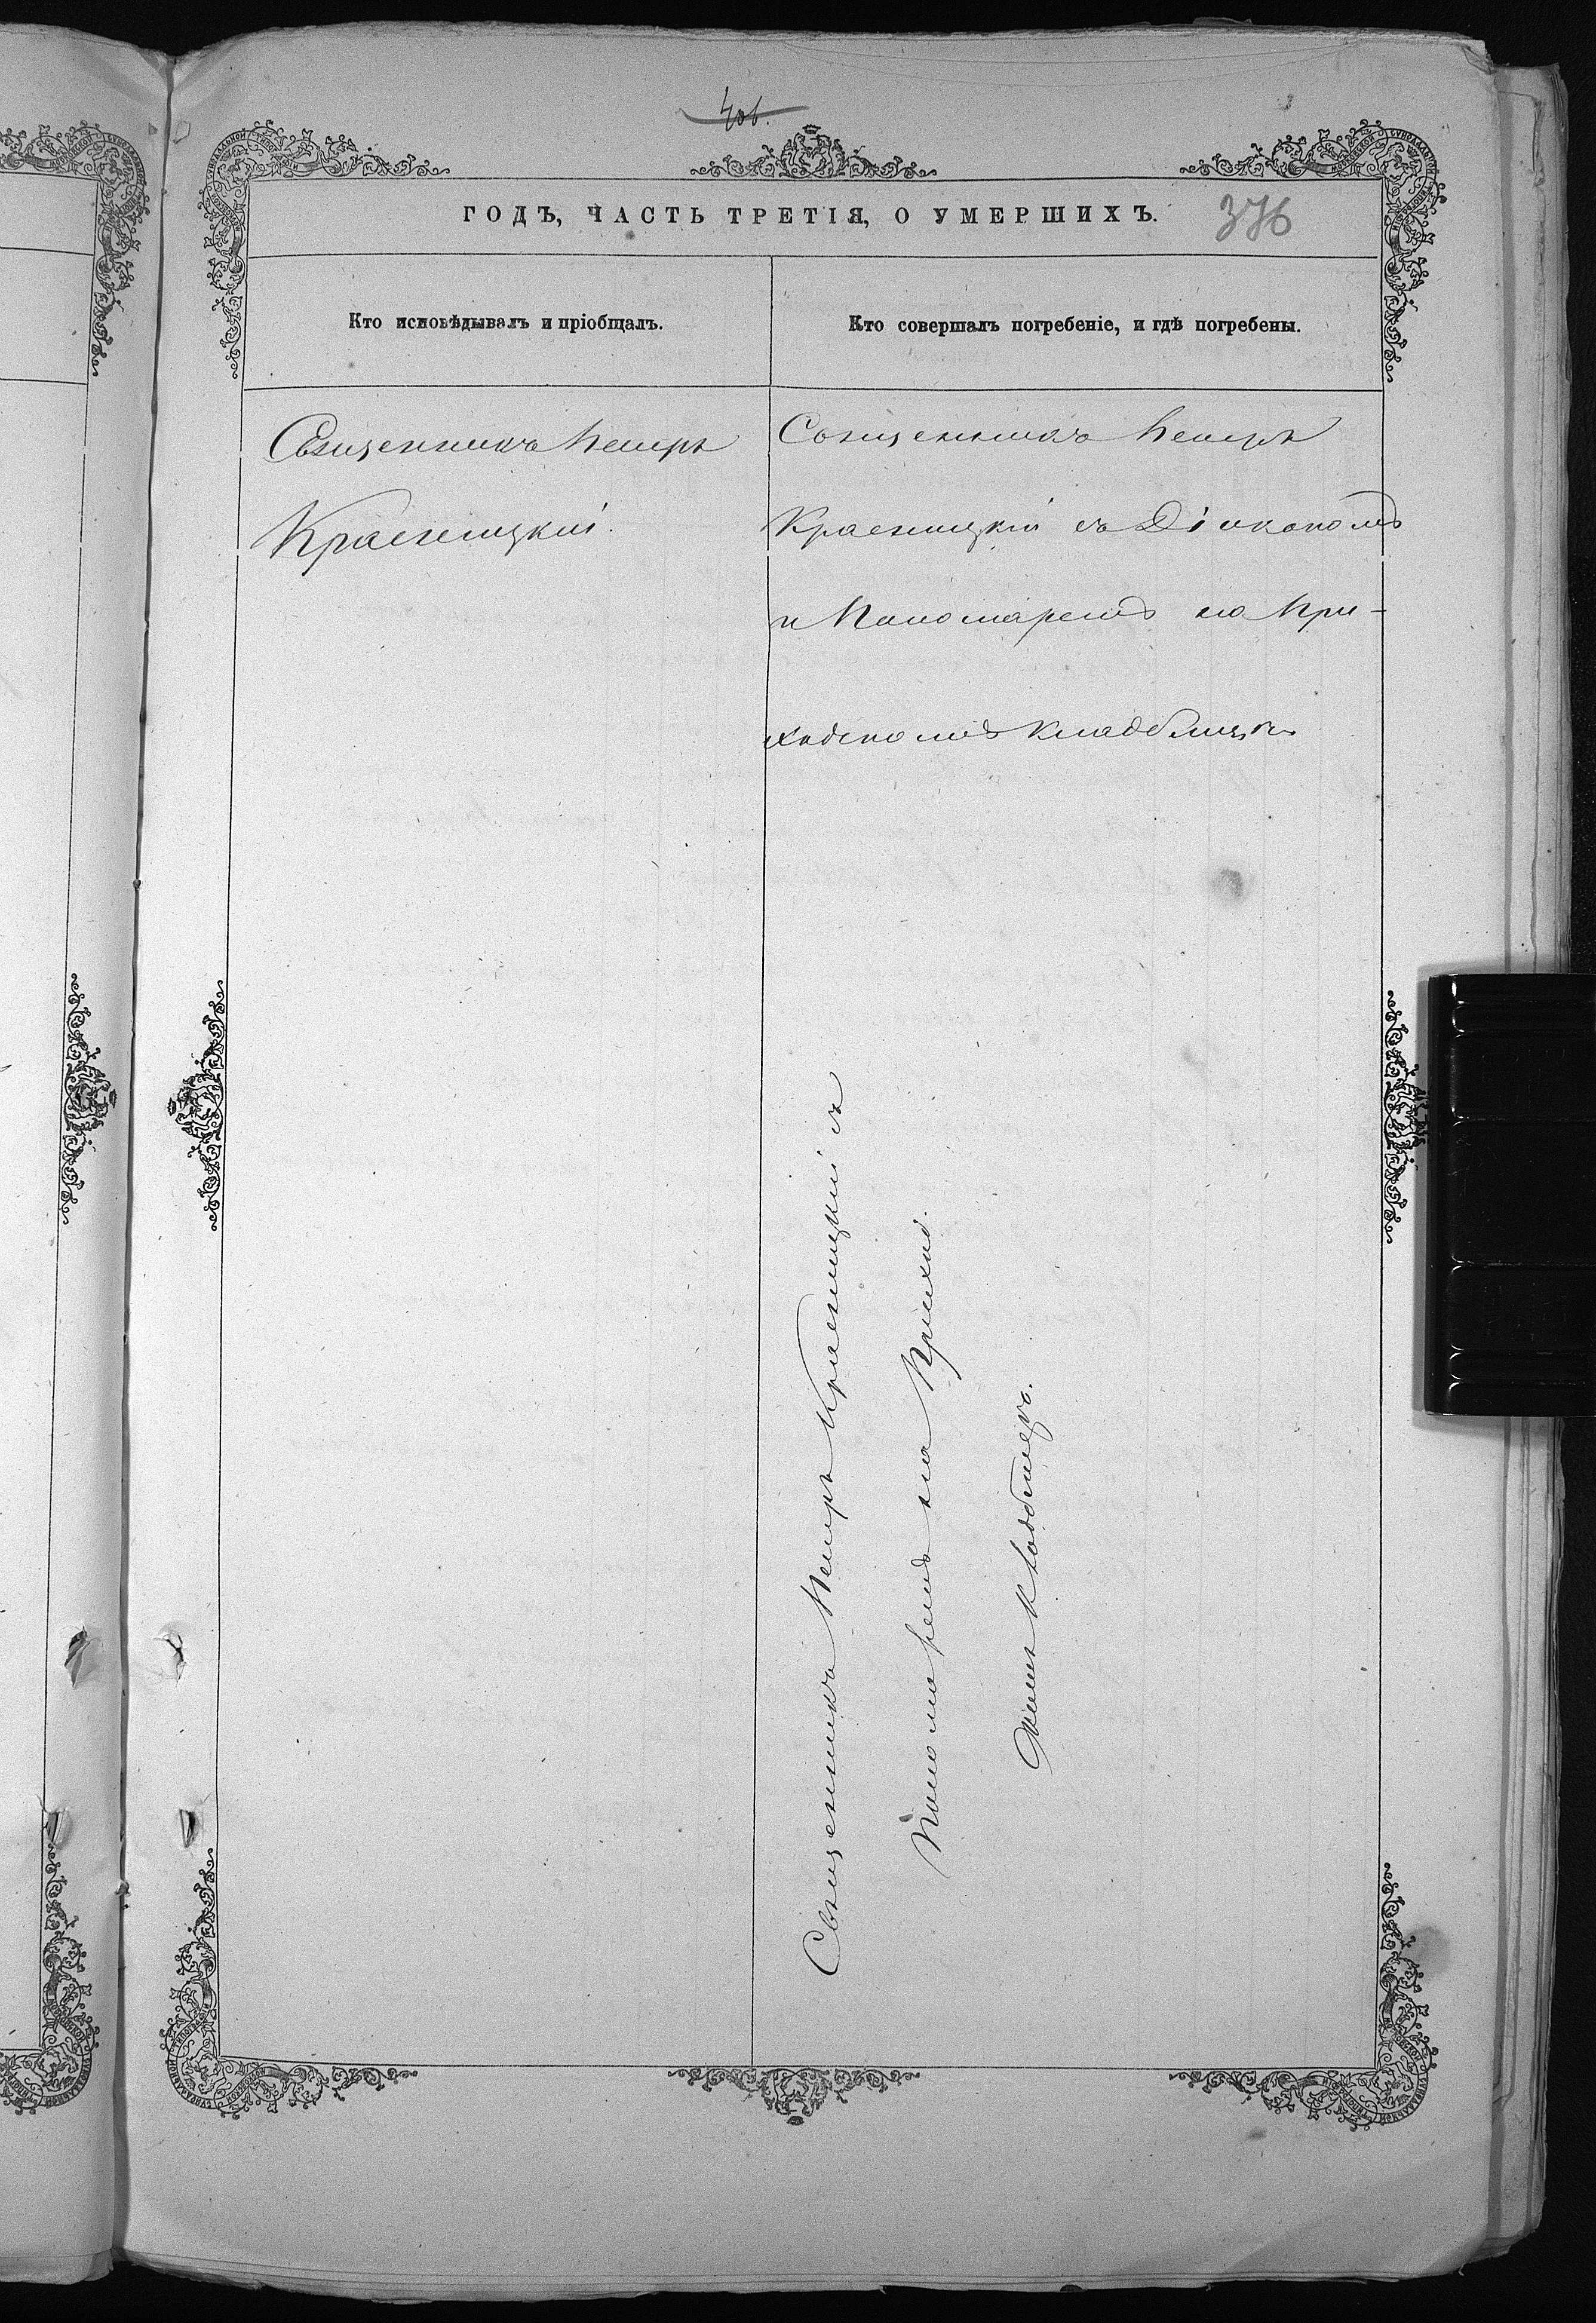 406.
ГОДЪ, ЧАСТЬ ТРЕТІЯ, О УМЕРШИХЪ.
376
Кто исповѣдывалъ и пріобщалъ.
Кто совершалъ погребеніе, и гдѣ погребены.
Священникъ Петръ
Красницкій.
Священникъ Петръ
Красницкій съ Діакономъ
и Пономаремъ на При-
ходскомъ кладбищѣ
Священникъ Петръ Красницкій съ
Пономаремъ на Приход.
кладбищѣ.